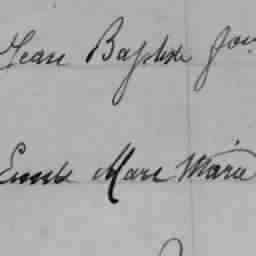 Jean Baptiste Jos
Emile Marc Marie